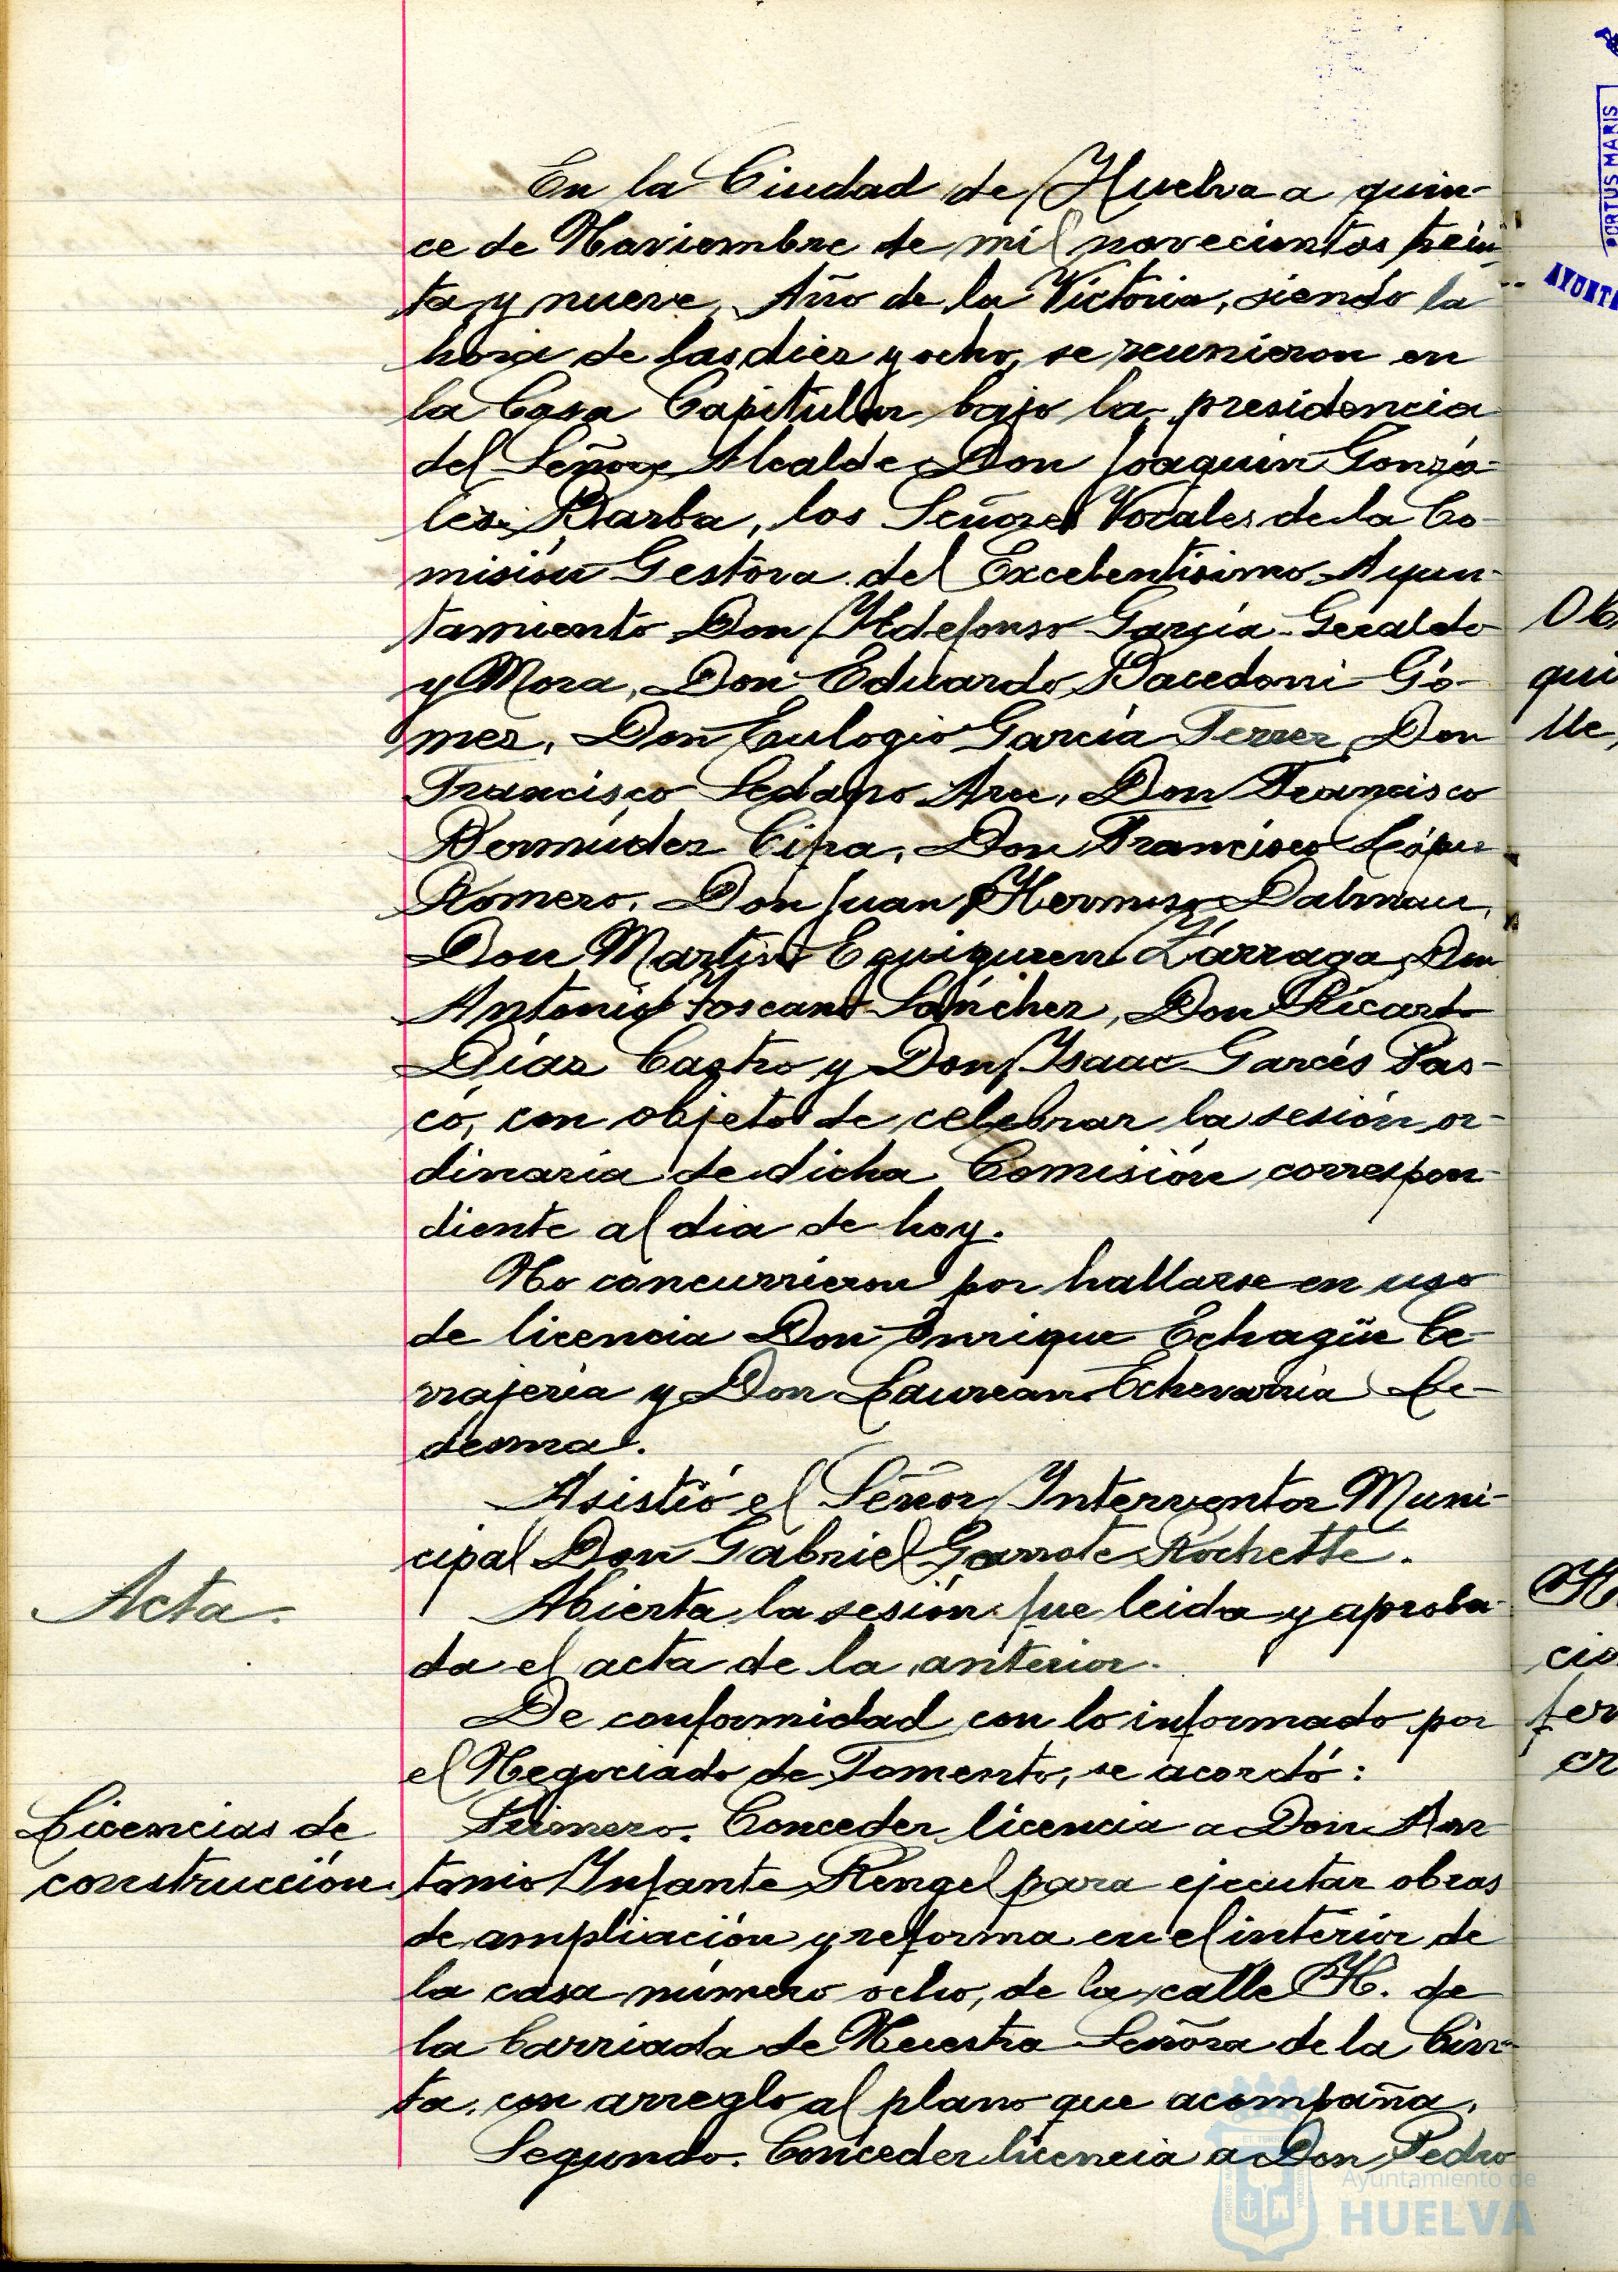 En la Ciudad de Huelva a quin-
ce de Noviembre de mil novecientos trein-
ta y nueve, Año de la Victoria, siendo la
hora de las diez y ocho, se reunieron en
la Casa Capitular bajo la presidencia
del Señor Alcalde Don Joaquin Gonzá-
lez Barba, los Señores Vocales de la Co-
misión Gestora del Excelentísimo Ayun-
tamiento Don Ildefonso García-Geraldo
y Mora, Don Eduardo Bacedoni Gó-
mez, Don Eulogio García Ferrer, Don
Francisco Sedano Arce, Don Francisco
Bermúdez Cifra, Don Francisco López
Romero, Don Juan Hermoso Dalmau,
Don Martin Eguiguren Zárraga, Don
Antonio Toscano Sánchez, Don Ricardo
Díaz Castro y Don Isaac Garcés Pas-
có, con objeto de celebrar la sesión or-
dinaria de dicha Comisión correspon-
diente al dia de hoy.
No concurrieron por hallarse en uso
de licencia Don Enrique Echagüe Ce-
rrajería y Don Laureano Echevarria Le-
desma.
Asistió el Señor Interventor Muni-
cipal Don Gabriel Garrote Rochette.
Acta.
Abierta la sesión fue leida y aproba-
da el acta de la anterior.
De conformidad con lo informado por
el Negociado de Fomento, se acordó:
Licencias de
construcción.
Primero. Conceder licencia a Don An-
tonio Infante Rengel para ejecutar obras
de ampliación y reforma en el interior de
la casa número ocho, de la calle H. de
la barriada de Nuestra Señora de la Cin-
ta, con arreglo al plano que acompaña.
Segundo. Conceder licencia a Don Pedro
Ayuntamiento de
HUELVA
PORTUS MARIS
AYUNTA